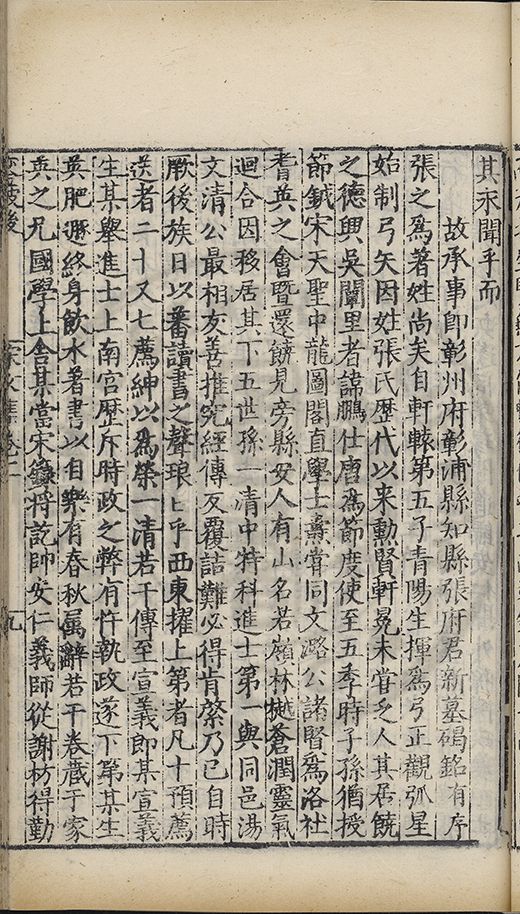 其永聞乎而
故承事郎彰州府彰浦縣知縣張府君新墓碣銘有序
張之爲著姓尚矣自軒轅第五子青陽生揮爲弓正觀弧星
始制弓矢因姓張氏歷代以来勳賢軒冕未嘗乏人其居饒
之德興吳闡里者諱鵬仕唐爲節度使至五季時子孫猶授
節鉞宋天聖中龍圖閣直學士燾嘗同文潞公諸賢爲洛社
耆英之會曁還饒見旁縣安人有山名若嶺林樾蒼潤靈氣
迴合因移居其下五世孫一清中特科進士第一與同邑湯
文清公最相友善推究經傳反覆詰難必得肯綮乃已自時
厥後族日以蕃讀書之聲琅〻乎西東擢上第者凡十預薦
送者二十又七薦紳以爲榮一清若干傳至宣義郎某宣義
生某舉進士上南宫歷斥時政之弊有忤執政遂下第某生
英肥遯終身飲水著書以自樂有春秋属辭若干卷藏于家
英之兄國學上舍某當宋籙将訖師安仁義師從謝枋得勤
卷二
九